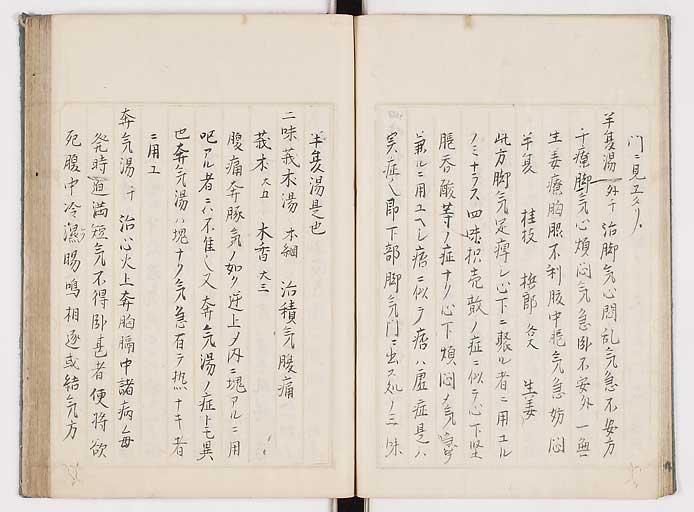 門ニ見エタリ、
半夏湯 外千 治脚気心悶乱気急不安方
千療脚気心煩悶気急臥不安外一無
生姜療胸脹不利腹中脹気急妨悶
半夏 桂枝 檳榔 各大 生姜
此方脚気足痺レ心下ニ聚ル者ニ用ユル
ノミナラス四味枳売散ノ症ニ似テ心下堅
脹呑酸等ノ症ナリ心下煩悶ノ気
兼ルニ用ユヘシ痞ニ似テ痞ハ虚症是ハ
実症也即下部脚気門ニ出ス処ノ三味
半夏湯是也
二味莪朮湯 本綱 治積気腹痛
莪朮 大五 木香 大三
腹痛奔豚気ノ如ク逆上メ内ニ塊アルニ用
吧アル者ニハ不佳也又奔気湯ノ症トモ異
也奔気湯ハ塊ナク気急有テ熱ナキ者
ニ用ユ
奔気湯 千 治心火上奔胸膈中諸病毎
発時迫満短気不得臥甚者便将欲
死腹中冷濕腸鳴相逐或結気方